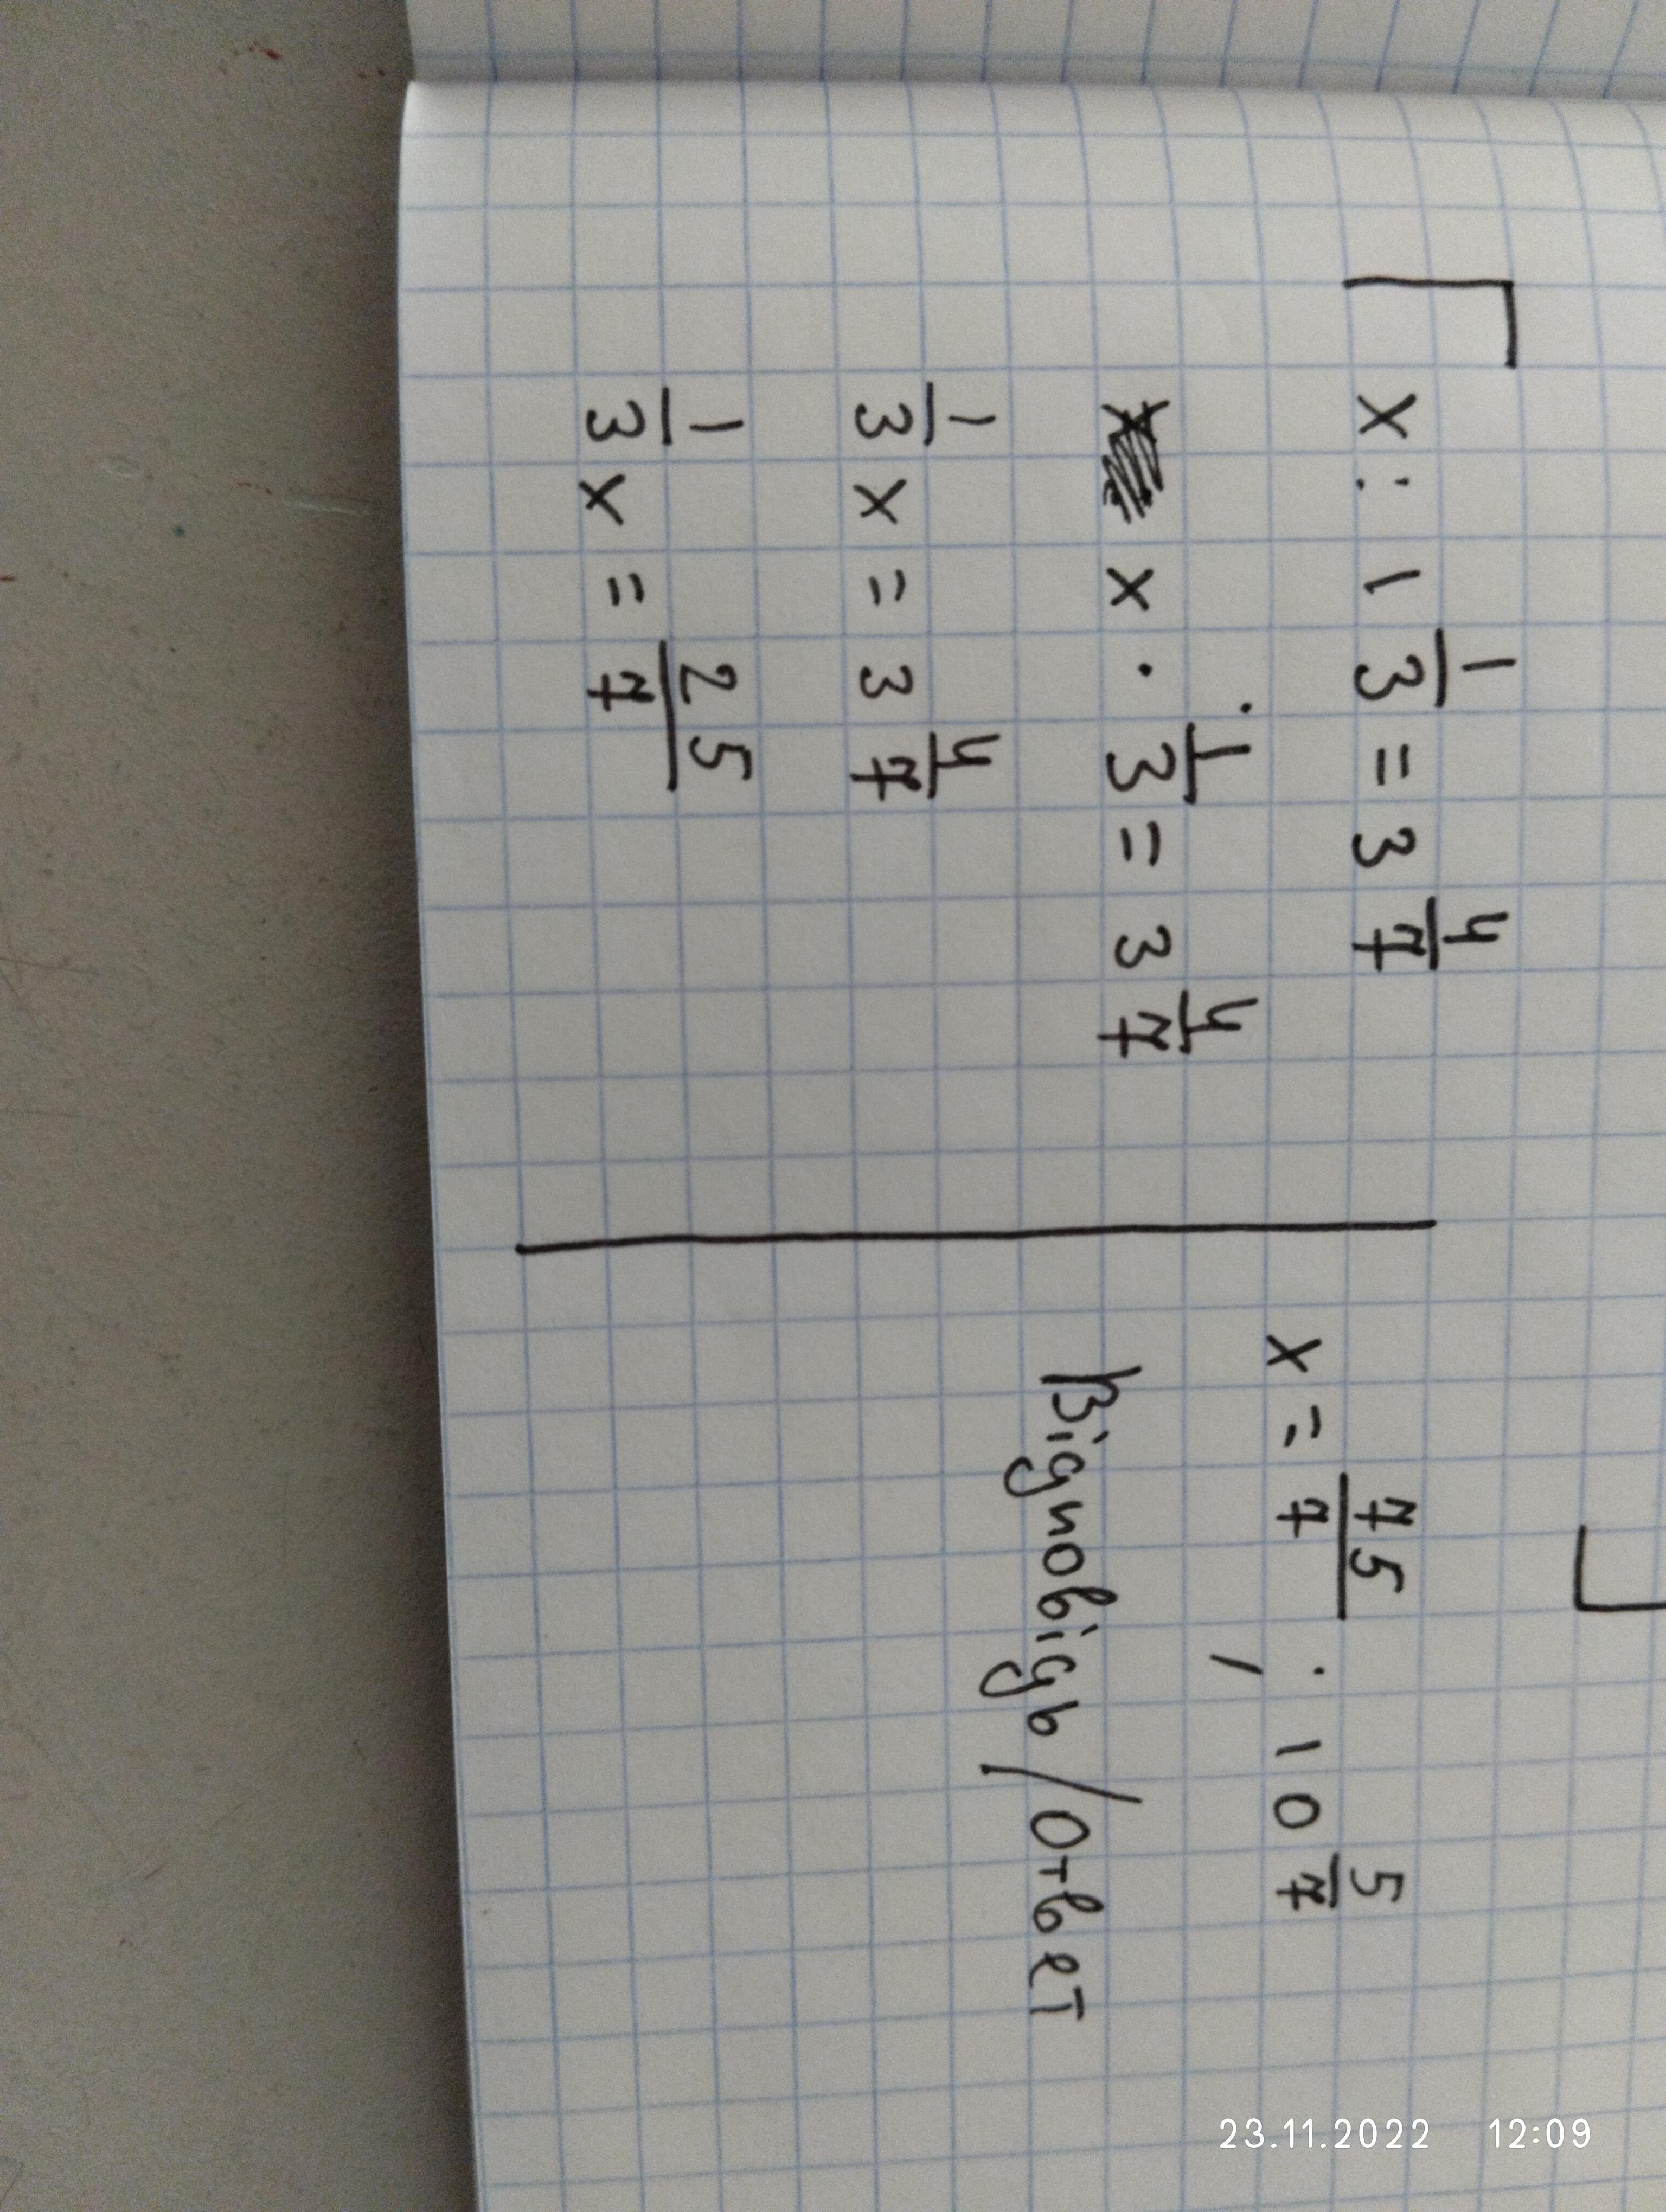 x : 1 1/3 = 3 4/7
x · 1/3 = 3 4/7
1/3 x = 3 4/7
1/3 x = 25/7
x = 75/7 ; 10 5/7
Відповідь / Ответ
23.11.2022 12:09